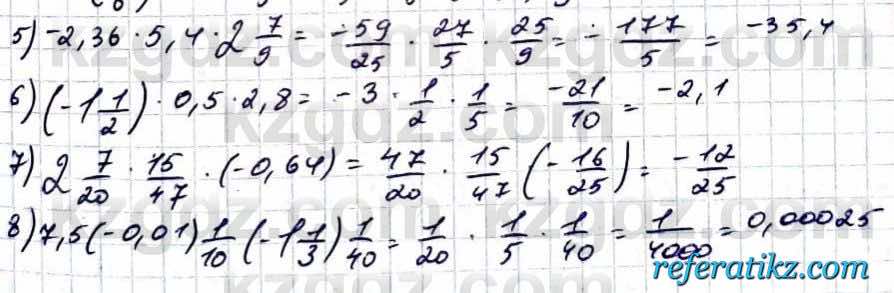 5) -2,36 · 5,4 · 2 7/9 = - 59/25 · 27/5 · 25/9 = - 177/5 = -35,4
6) (-1 1/2) · 0,5 · 2,8 = -3 · 1/2 · 1/5 = -21/10 = -2,1
7) 2 7/20 · 15/47 · (-0,64) = 47/20 · 15/47 (-16/25) = -12/25
8) 7,5 (-0,01) 1/10 (-1 1/3) 1/40 = 1/20 · 1/5 · 1/40 = 1/4000 = 0,00025
referatikz.com